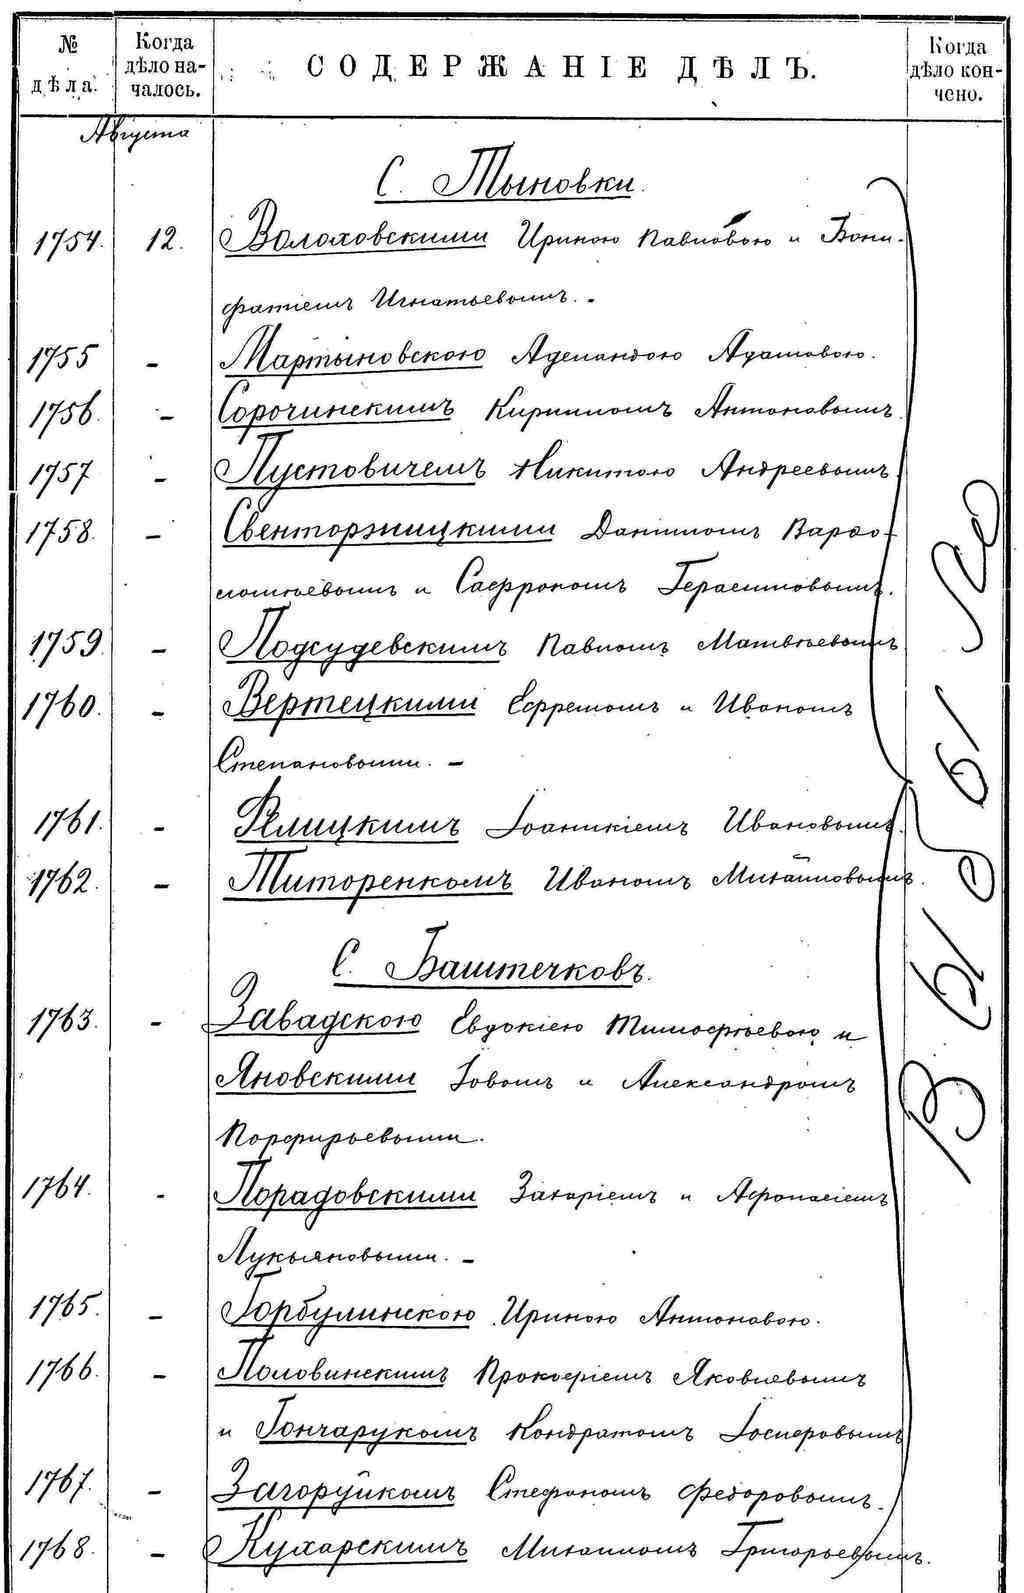 № дѣла.
Когда дѣло на-чалось.
СОДЕРЖАНІЕ ДѢЛЪ.
Когда дѣло кон-чено.
Августа
С. Тыновки.
1754. 12. Волоховскими Ириною Павловою и Бони-
фатіемъ Игнатьевымъ. -
1755 - Мартыновскою Аделаидою Адамовою.
1756. - Сорочинскимъ Кирилломъ Антоновымъ.
1757 - Пустовичемъ Никитою Андреевымъ.
1758. - Свенторжицкими Даніиломъ Варфо-
ломѣевымъ и Сафрономъ Герасимовымъ.
1759. - Подсудевскимъ Павломъ Матвѣевымъ
1760. - Вертецкими Ефремомъ и Иваномъ
Степановыми. -
1761. - Ѣлицкимъ Іоаникіемъ Ивановымъ.
1762. - Титоренкомъ Иваномъ Михайловымъ.
С. Баштечковъ.
1763. - Завадскою Евдокіею Тимофѣевою и
Яновскими Іовомъ и Александромъ
Порфирьевыми.
1764. - Порадовскими Захаріемъ и Афонасіемъ
Лукьяновыми. -
1765. - Горбулинскою Ириною Антоновою.
1766. - Половинскимъ Прокофіемъ Яковлевымъ
и Гончарукомъ Кондратомъ Іосифовымъ
1767. - Загоруйкомъ Стефаномъ Федоровымъ.
1768. - Кухарскимъ Михаиломъ Григорьевымъ.